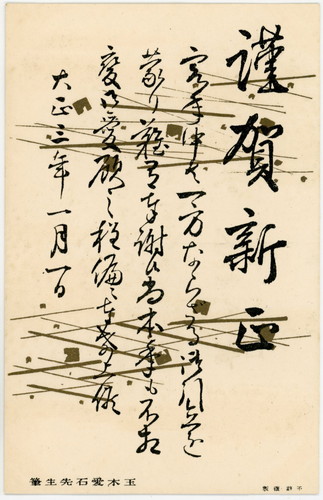 謹賀新正
客年中は一方ならざる御引立を
蒙り難有奉謝候尚本年も不相
変御愛顧之程偏に奉希上候
大正三年一月一日
玉木愛石先生筆
不許複製